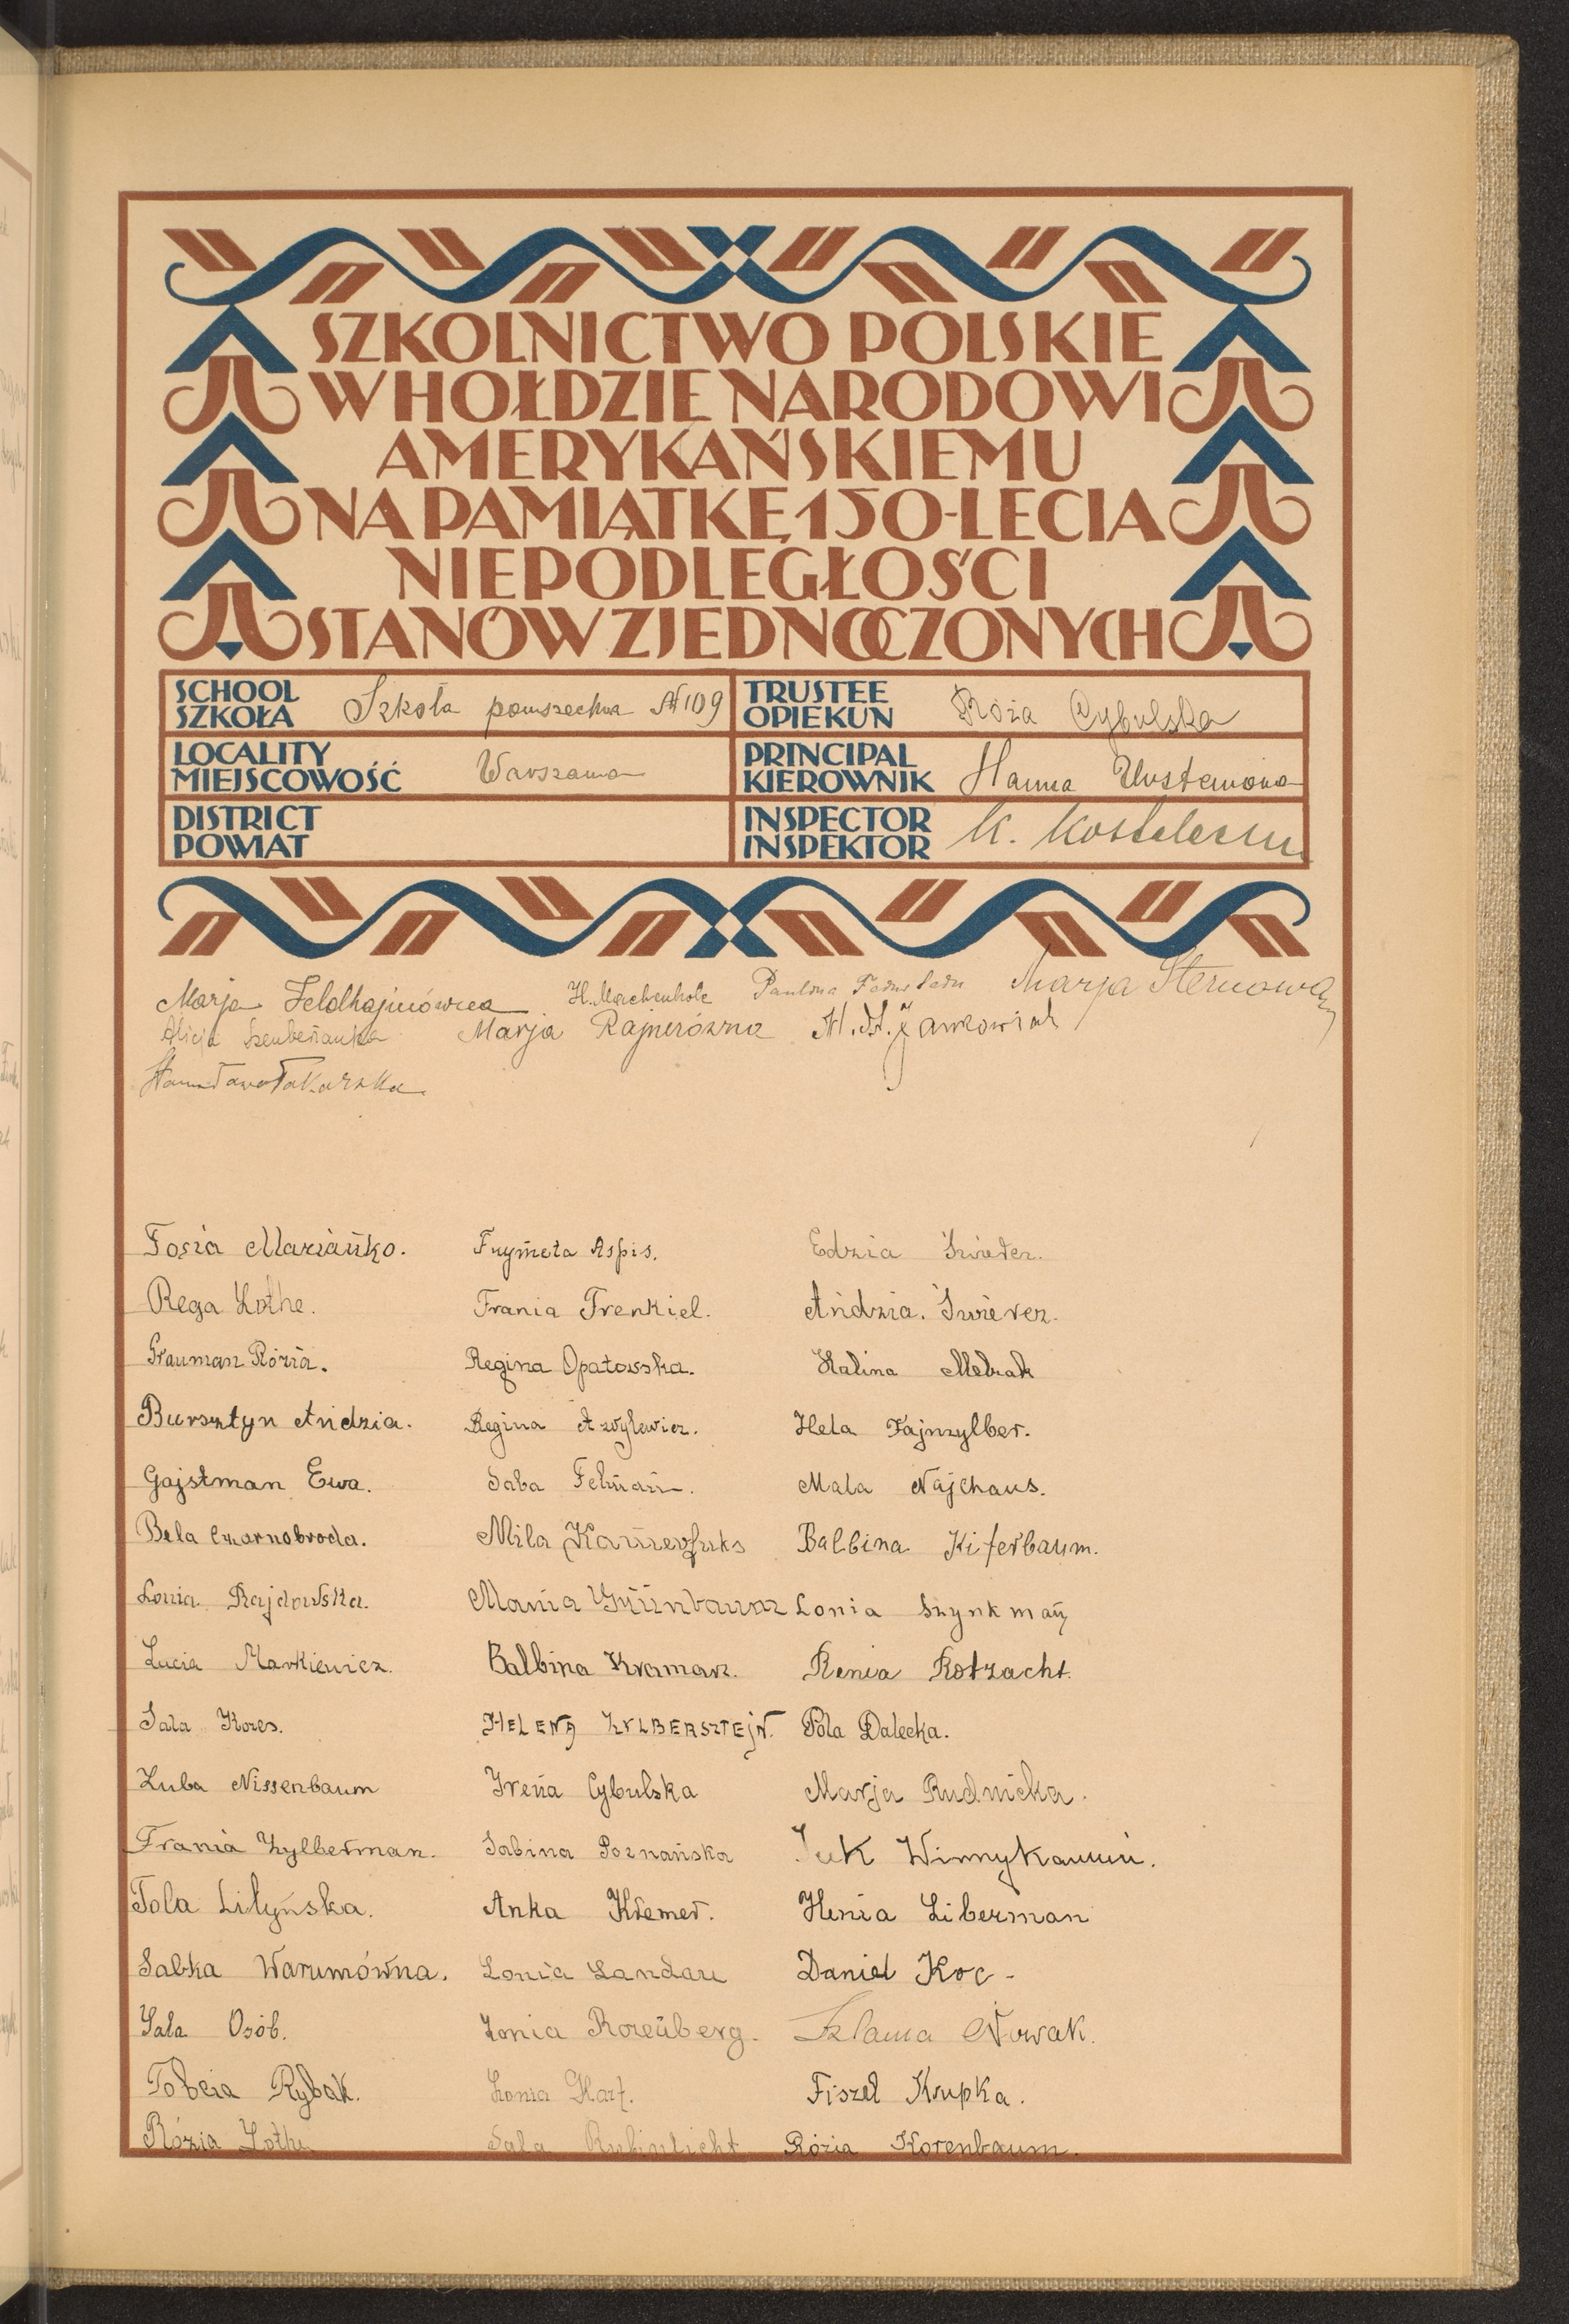 SZKOLNICTWO POLSKIE
W HOŁDZIE NARODOWI
AMERYKAŃSKIEMU
NA PAMIĄTKĘ 150-LECIA
NIEPODLEGŁOŚCI
STANÓW ZJEDNOCZONYCH
SCHOOL
SZKOŁA
Szkoła powszechna № 109
TRUSTEE
OPIEKUN
Róża Cybulska
LOCALITY
MIEJSCOWOŚĆ
Warszawa
PRINCIPAL
KIEROWNIK
Hanna
DISTRICT
POWIAT
INSPECTOR
INSPEKTOR
K.
Marja Feldhajmówna Paulina Marja Sternowa
Alicja Marja Rajnerówna
Stanisława Tokarska
Fosia Mariańko. Frymeta Aspis. Edzia
Rega Lothe. Frania Frenkiel. Andzia.
Grauman Rózia. Regina Opatowska. Halina
Bursztyn Andzia. Regina Hela Fajnzylber.
Gajstman Ewa. Saba Felman. Mala Najchaus.
Bela Czarnobroda. Mila Balbina Kiferbaum.
Lonia Rajdowska. Mania Grünbaum Lonia Szynkman
Lucia Markiewicz. Balbina Kramarz. Renia Rotzacht.
Sala Kores. HELENA ZYLBERSZTEJN. Pola Dalecka.
Luba Nissenbaum Irena Cybulska Marja Rudnicka.
Frania Zylberman. Sabina Poznańska
Tola Lityńska. Anka Kremer. Henia Liberman
Sabka Warumówna. Lonia Landau Daniel Koc-
Sala Osób. Lonia Rozenberg. Szlama Nowak.
Tobcia Rybak. Lonia Harf. Fiszel Krupka.
Rózia Lothe Sala Rubinlicht Rózia Korenbaum.